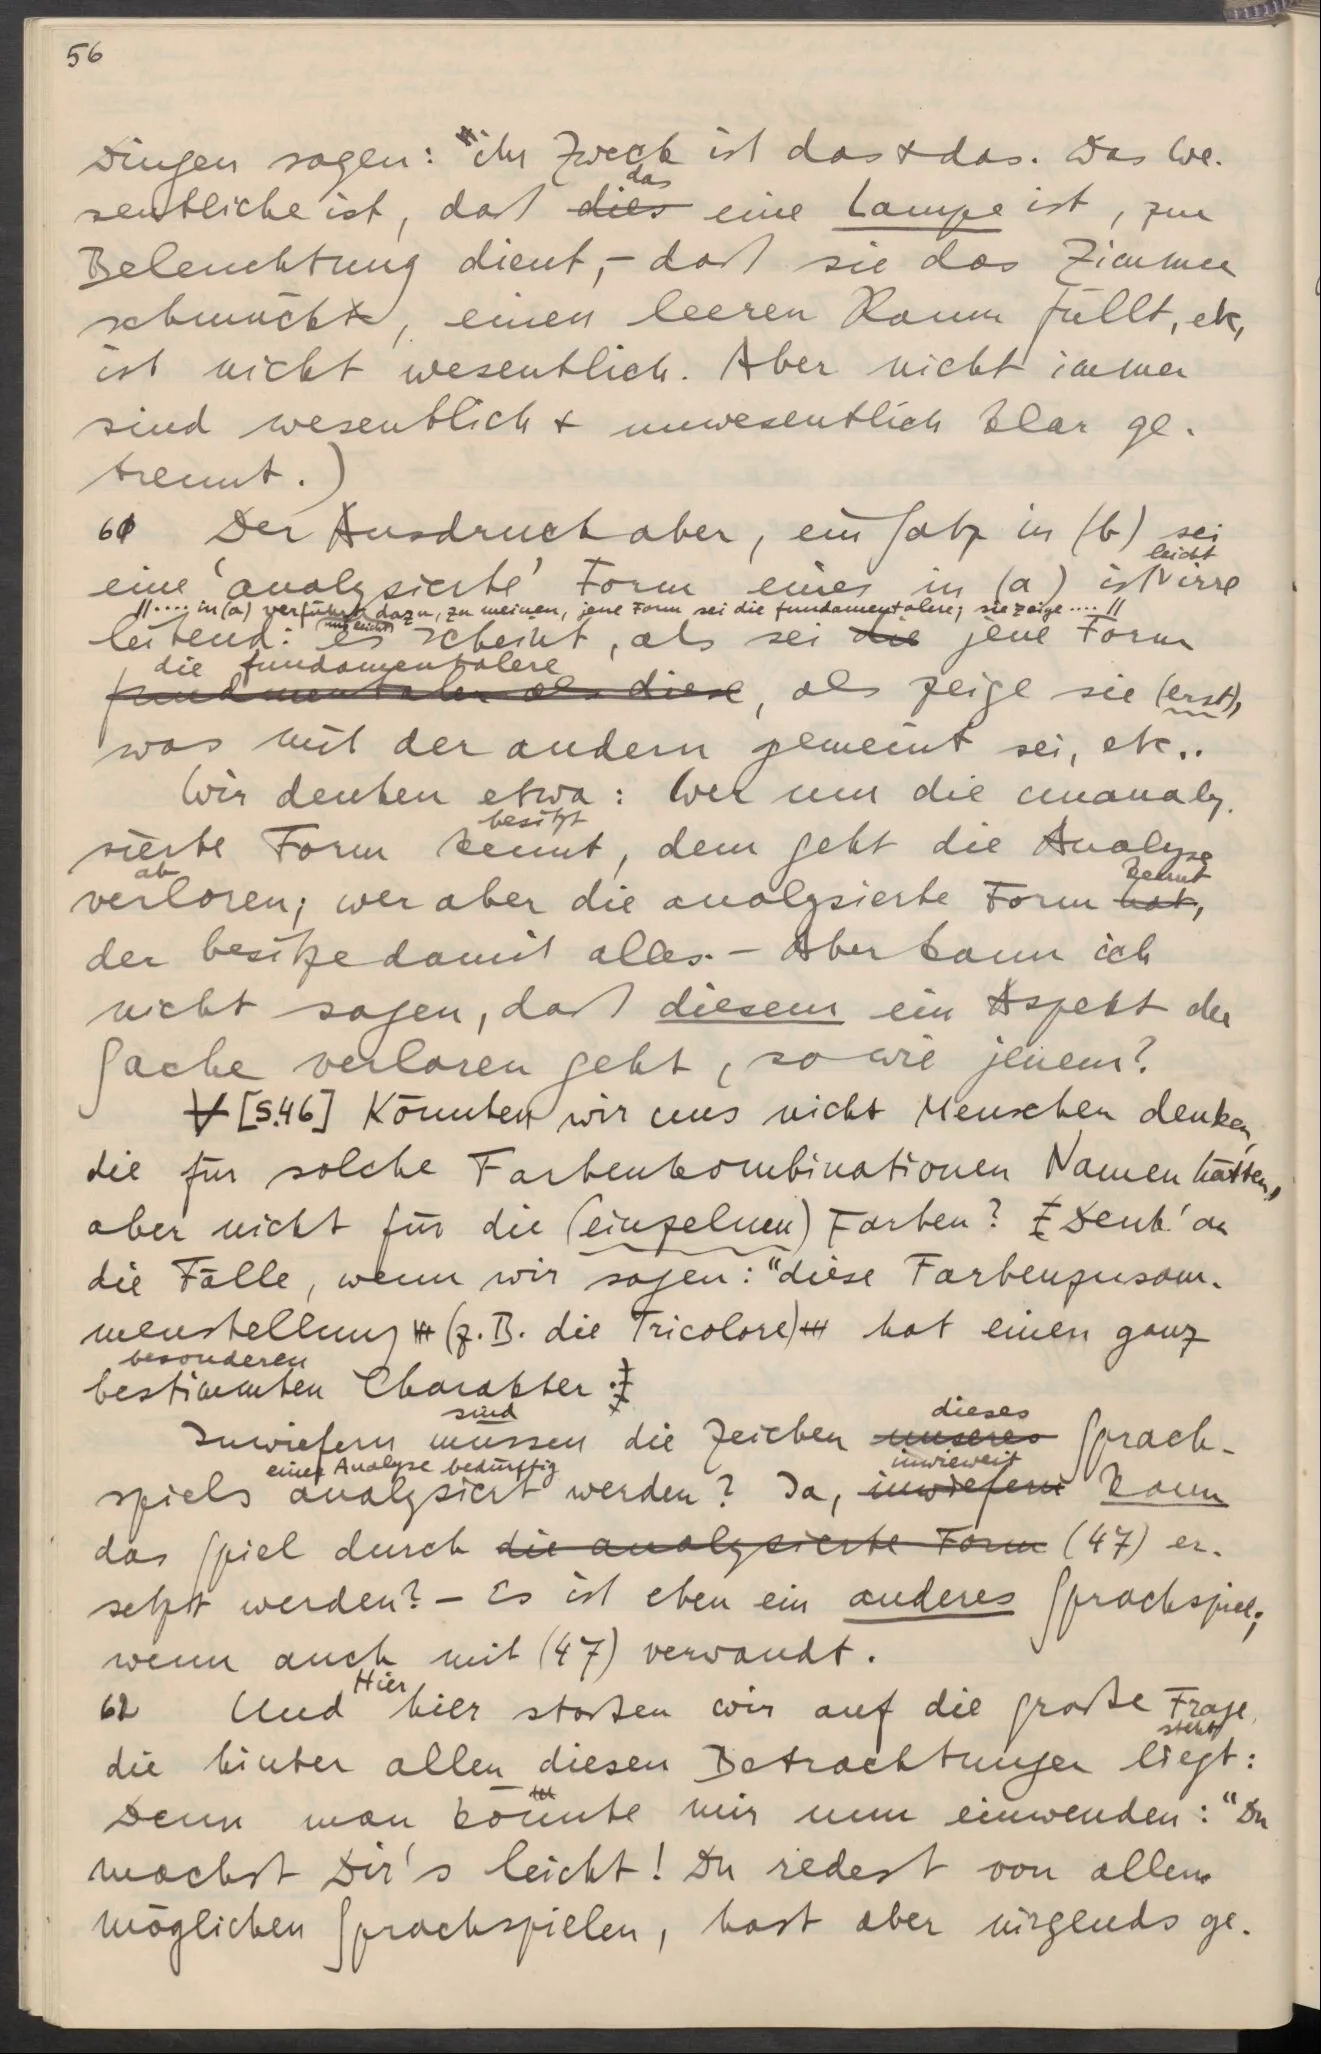 56
Dingen sagen: "ihr Zweck ist das & das. Das We-
das
sentliche ist, daß dies eine Lampe ist, zur
Beleuchtung dient, – daß sie das Zimmer
schmückt, einen leeren Raum füllt, etc,
ist nicht wesentlich. Aber nicht immer
sind wesentlich & unwesentlich klar ge-
trennt.)
61 Der Ausdruck aber, ein Satz in (b) sei
leicht
eine 'analysierte' Form eines in (a) ist irre
//.... in (a) verführt dazu, zu meinen, jene Form sei die fundamentalere; sie zeige .... //
(uns leicht)
leitend: es scheint, als sei die jene Form
die fundamentalere
fundamentaler als diese, als zeige sie (erst),
was mit der andern gemeint sei, etc..
Wir denken etwa: Wer nur die unanaly-
besitzt
sierte Form kennt, dem geht die Analyse
ab kennt
verloren; wer aber die analysierte Form hat,
der besitze damit alles. – Aber kann ich
nicht sagen, daß diesem ein Aspekt der
Sache verloren geht, so wie jenem?
∀ [S.46] Könnten wir uns nicht Menschen denken,
die für solche Farbenkombinationen Namen hätten,
aber nicht für die (einzelnen) Farben? Denk' an
die Fälle, wenn wir sagen: "diese Farbenzusam-
menstellung (z.B. die Tricolore) hat einen ganz
besonderen
bestimmten Charakter.
sind dieses
Inwiefern müssen die Zeichen unseres Sprach-
einer Analyse bedürftig inwieweit
spiels analysiert werden? Ja, inwiefern kann
das Spiel durch die analysierte Form (47) er-
setzt werden? – Es ist eben ein anderes Sprachspiel;
wenn auch mit (47) verwandt.
Hier
62 Und hier stoßen wir auf die große Frage,
steht
die hinter allen diesen Betrachtungen liegt:
Denn man könnte mir nun einwenden: "Du
machst Dir's leicht! Du redest von allen
möglichen Sprachspielen, hast aber nirgends ge-